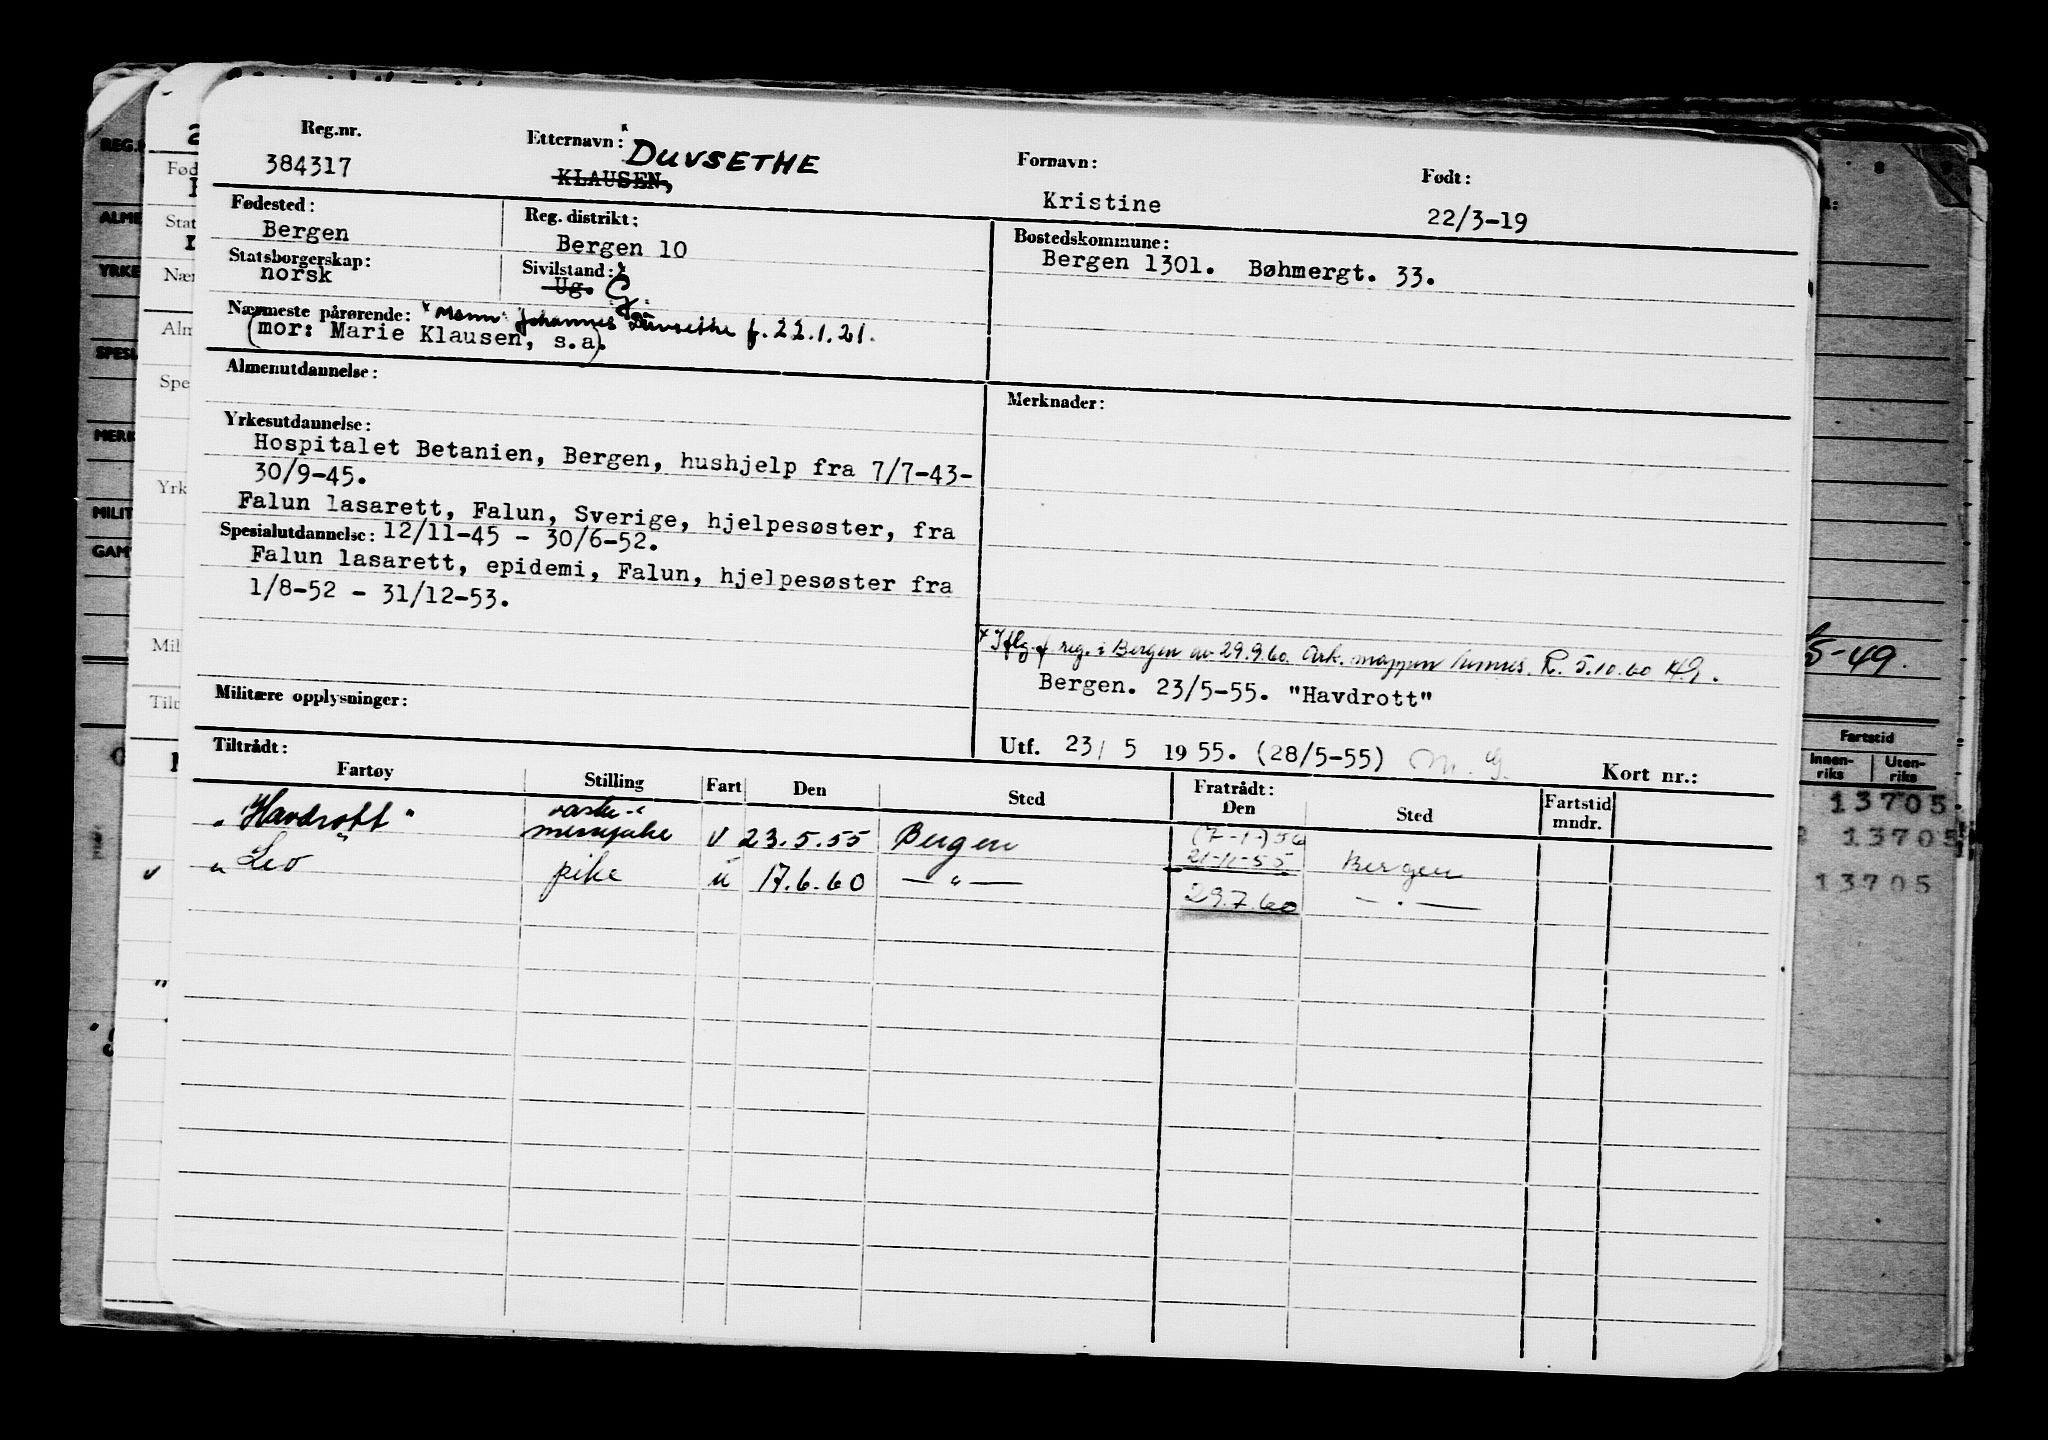 Reg.nr. Etternavn: x DUVSETHE Fornavn: Født:
384317 KLAUSEN, Kristine 22/3-19
Fødested: Reg. distrikt: Bostedskommune:
Bergen Bergen 10 Bergen 1301. Bøhmergt. 33.
Statsborgerskap: Sivilstand: x
norsk Ug. G.
Nærmeste pårørende: x Mann: Johannes Duvsethe f. 22.1.21.
(mor: Marie Klausen, s.a).
Almenutdannelse: Merknader:
Yrkesutdannelse:
Hospitalet Betanien, Bergen, hushjelp fra 7/7-43-
30/9-45.
Falun lasarett, Falun, Sverige, hjelpesøster, fra
Spesialutdannelse: 12/11-45 - 30/6-52.
Falun lasarett, epidemi, Falun, hjelpesøster fra
1/8-52 - 31/12-53.
x Iflg. reg. i Bergen av 29.9.60. Ark. mappen 5.10.60
Bergen. 23/5-55. "Havdrott"
Militære opplysninger:
Utf. 23/ 5 1955. (28/5-55) M.G. Kort nr.:
Tiltrådt: Fratrådt:
Fartøy Stilling Fart Den Sted Den Sted Fartstid mndr.
"Havdrott" vaske- messepike v 23.5.55 Bergen (7-1-)56 21-11-55 Bergen
"Leo" pike u 17.6.60 — " — 29.7.60 — " —
5-49.
Fartstid
Innen-riks Uten-riks
13705
13705
13705
REG.
ALME
YRKE
SPESI
MERK
MILIT
Fød
Stat
Nær
Alm
Spe
Yrk
Mil
Tilt